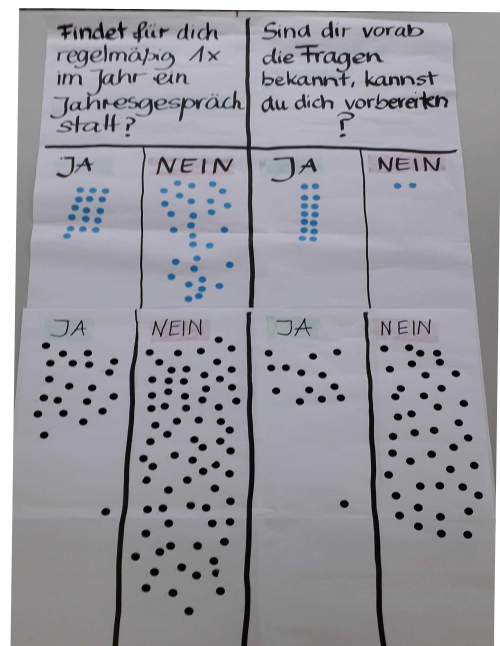 Findet für dich
regelmäßig 1x
im Jahr ein
Jahresgespräch
statt?
Sind dir vorab
die Fragen
bekannt, kannst
du dich vorbereiten
?
JA
NEIN
JA
NEIN
JA
NEIN
JA
NEIN